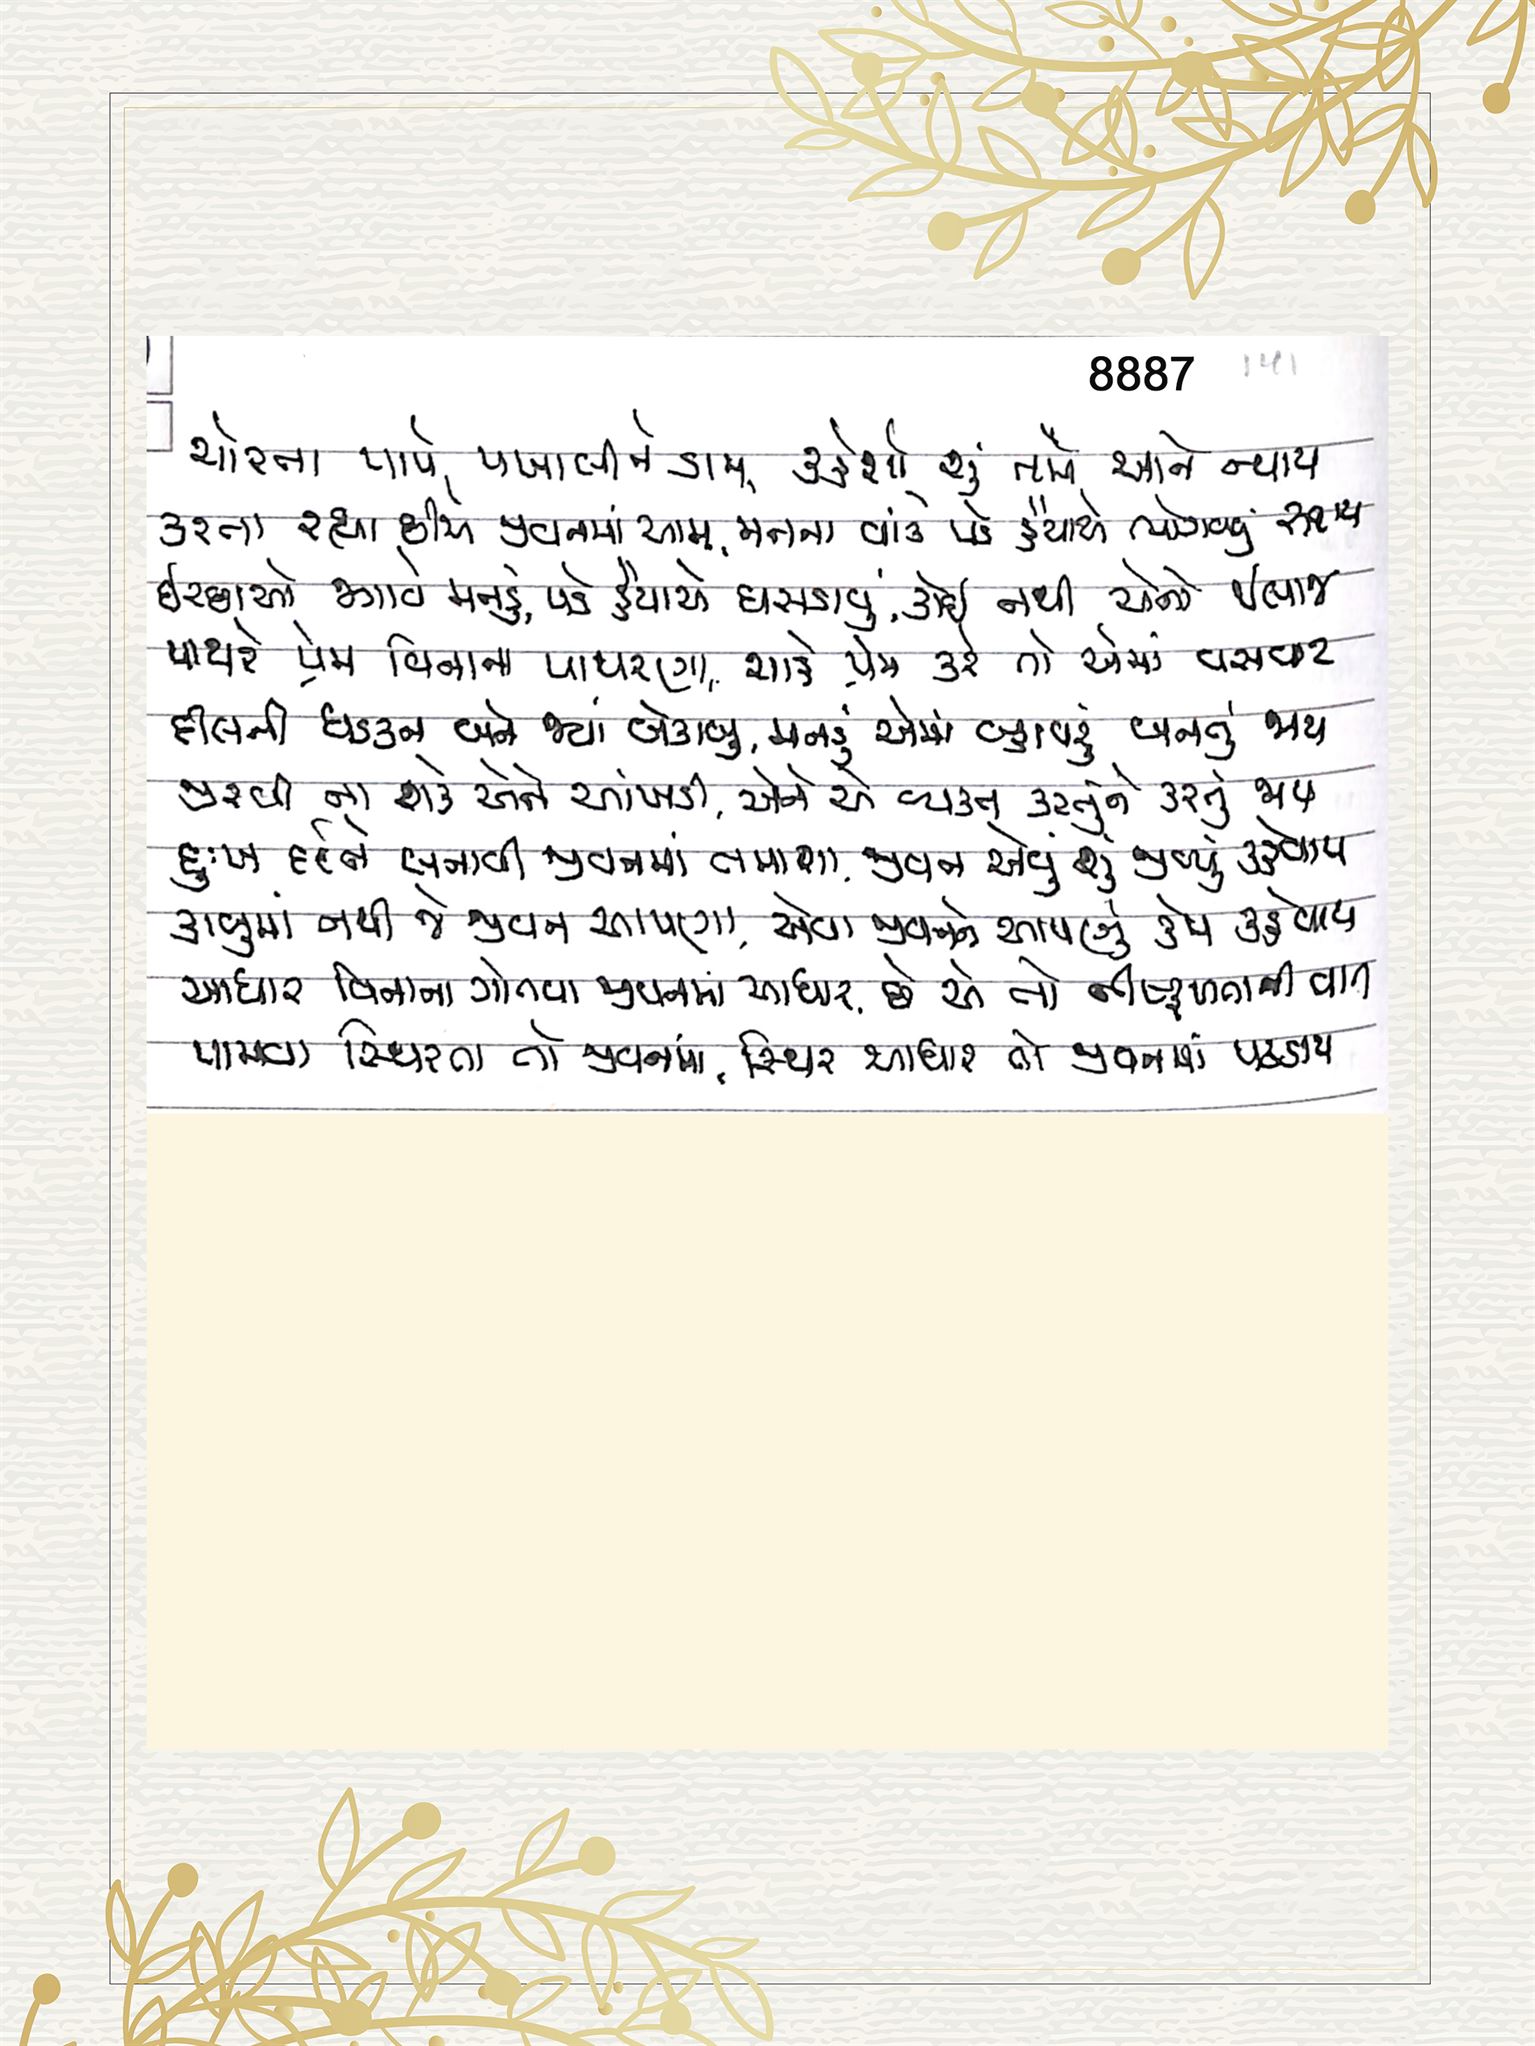 8887
141
ચોરના પાપે, પખાલીને ડામ, કહેશો શું તમે, આને ન્યાય
કરતા રહ્યા છીએ જીવનમાં આમ, મનના વાંકે પડે હૈયાએ ભોગવવું સદાય
ઇચ્છાઓ જગાવે મનડું, પડે હૈયાએ ઘસડાવું, કોઈ નથી એનો ઈલાજ
પાથરે પ્રેમ વિનાના પાથરણા, શાને પ્રેમ કરે તો એમાં વસવાટ
દીલની ધડકન બને જ્યાં બેકાબુ, મનડું એમાં બહાવરું બનતું જાય
જીરવી ના શકે એને આંખડી, એને એ વ્યક્ત કરતુંને કરતું જાય
દુઃખ દર્દને બનાવી જીવનમાં તમાશા, જીવન એવું શું જીવ્યું કહેવાય
કાબુમાં નથી જે જીવન આપણા, એવા જીવનને આપણું કેમ કહેવાય
આધાર વિનાના ગોતવા જીવનમાં આધાર, છે એ તો નીષ્ફળતાની વાત
પામવા સ્થિરતા તો જીવનમાં, સ્થિર આધાર તો જીવનમાં પકડાય